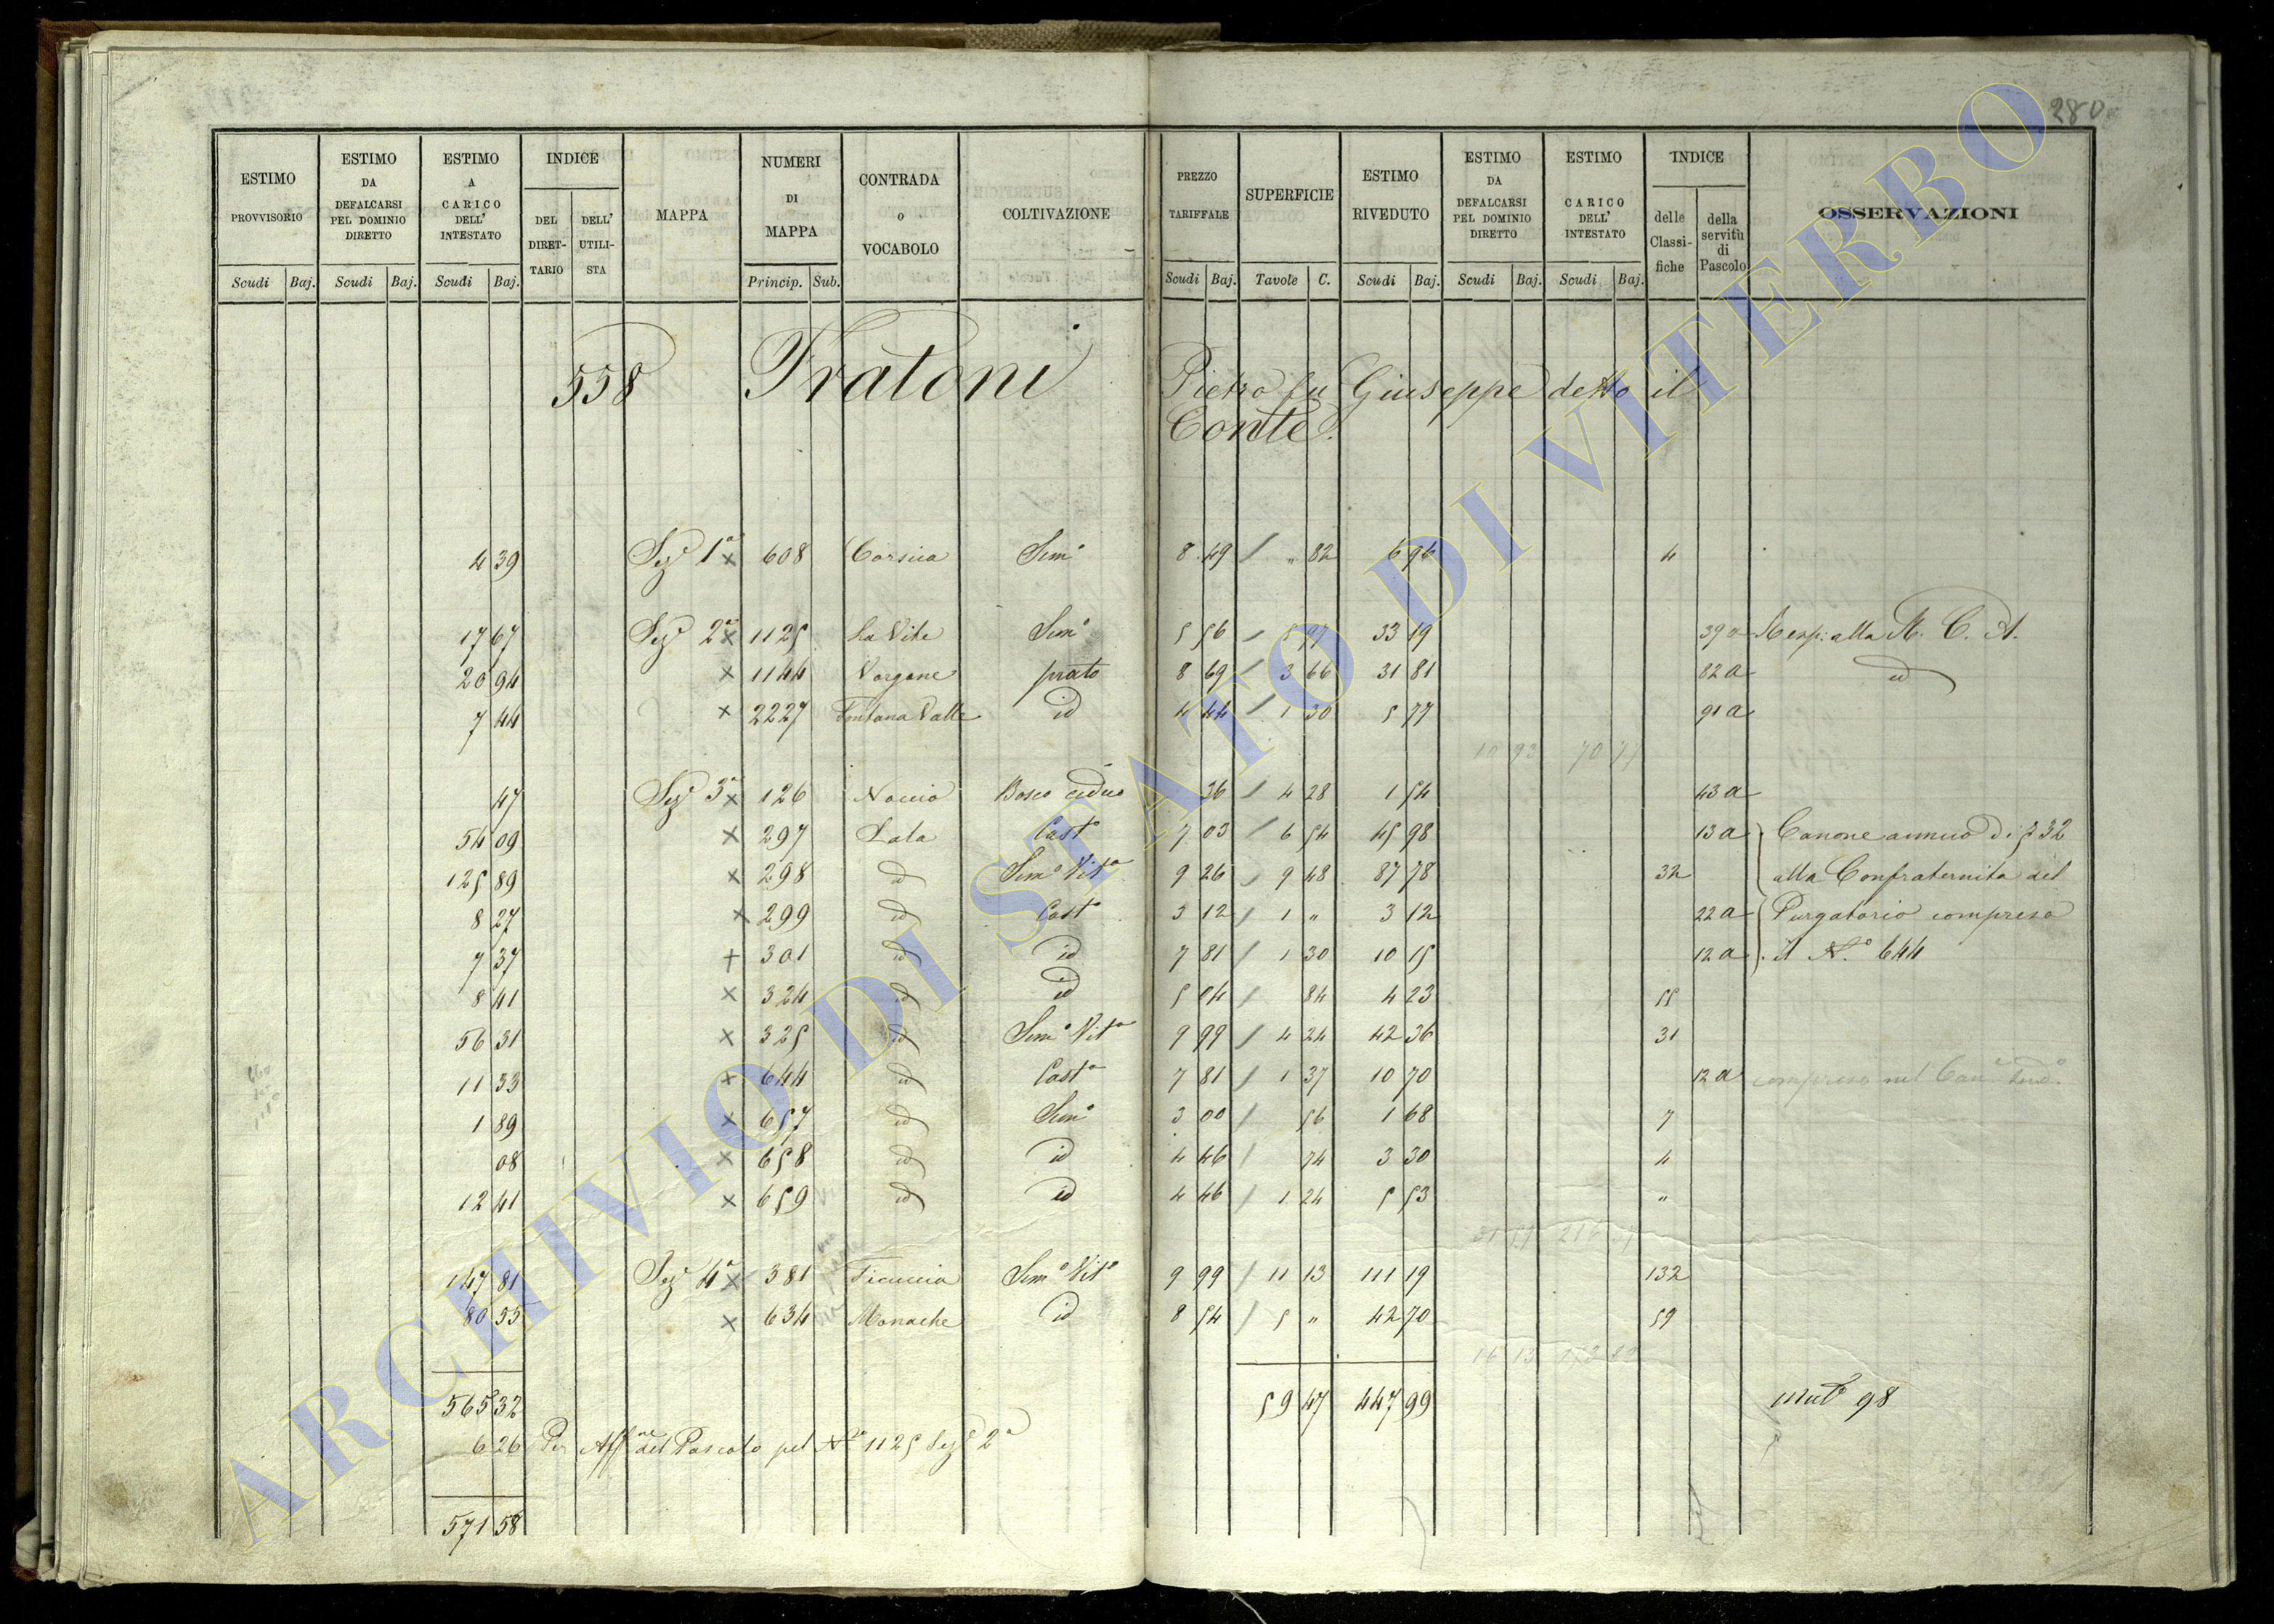 280
ESTIMO PROVVISORIO | ESTIMO DA DEFALCARSI PEL DOMINIO DIRETTO | ESTIMO A CARICO DELL' INTESTATO | INDICE | MAPPA | NUMERI DI MAPPA | CONTRADA o VOCABOLO | COLTIVAZIONE | PREZZO TARIFFALE | SUPERFICIE | ESTIMO RIVEDUTO | ESTIMO DA DEFALCARSI PEL DOMINIO DIRETTO | ESTIMO A CARICO DELL' INTESTATO | INDICE | OSSERVAZIONI
DEL DIRET-TARIO | DELL' UTILI-STA | delle Classi-fiche | della servitù di Pascolo
Scudi Baj. | Scudi Baj. | Scudi Baj. | Princip. Sub. | Scudi Baj. | Tavole C. | Scudi Baj. | Scudi Baj. | Scudi Baj.
558 Fratoni Pietro fu Giuseppe detto il
Conte.
4 39 Sez.e 1a x 608 Corsica Sem.o 8 49 / " 82 6 96 4
17 67 Sez.e 2a x 1125 La Vite Sem.o 5 56 / 5 97 33 19 39 a Resp. alla R. C. A.
20 94 x 1144 Vorgone prato 8 69 / 3 66 31 81 82 a id
7 44 x 2227 Fontana Valle id 4 44 / 1 30 5 77 91 a
10 93 70 77
47 Sez.e 3a x 126 Noccio Bosco ceduo 36 / 4 28 1 54 43 a
54 09 x 297 Lata Cast.o 7 03 / 6 54 45 98 13 a Canone annuo di 32
125 89 x 298 id Sem.o Vit.o 9 26 / 9 48 87 78 32 alla Confraternita del
8 27 x 299 id Cast.o 3 12 / 1 " 3 12 22 a Purgatorio compreso
7 37 + 301 id id 7 81 / 1 30 10 15 12 a il N.o 644
8 41 x 324 id id 5 04 / 84 4 23 55
56 31 x 325 id Sem.o Vit.o 9 99 / 4 24 42 36 31
11 33 x 644 id Cast.o 7 81 / 1 37 10 70 12 a compreso nel Can.e
1 89 x 657 id Sem.o 3 00 / 56 1 68 7
08 x 658 id id 4 46 / 74 3 30 4
12 41 x 659 id id 4 46 / 1 24 5 53 "
147 81 Sez.e 4a x 381 Ficuccia Sem.o Vit.o 9 99 / 11 13 111 19 132
80 55 x 634 Monache id 8 54 / 5 " 42 70 59
565 32 59 47 447 99 Mut.e 98
6 26 Per Aff.ne del Pascolo pel N.o 1125 Sez.e 2a
571 58
ARCHIVIO DI STATO DI VITERBO